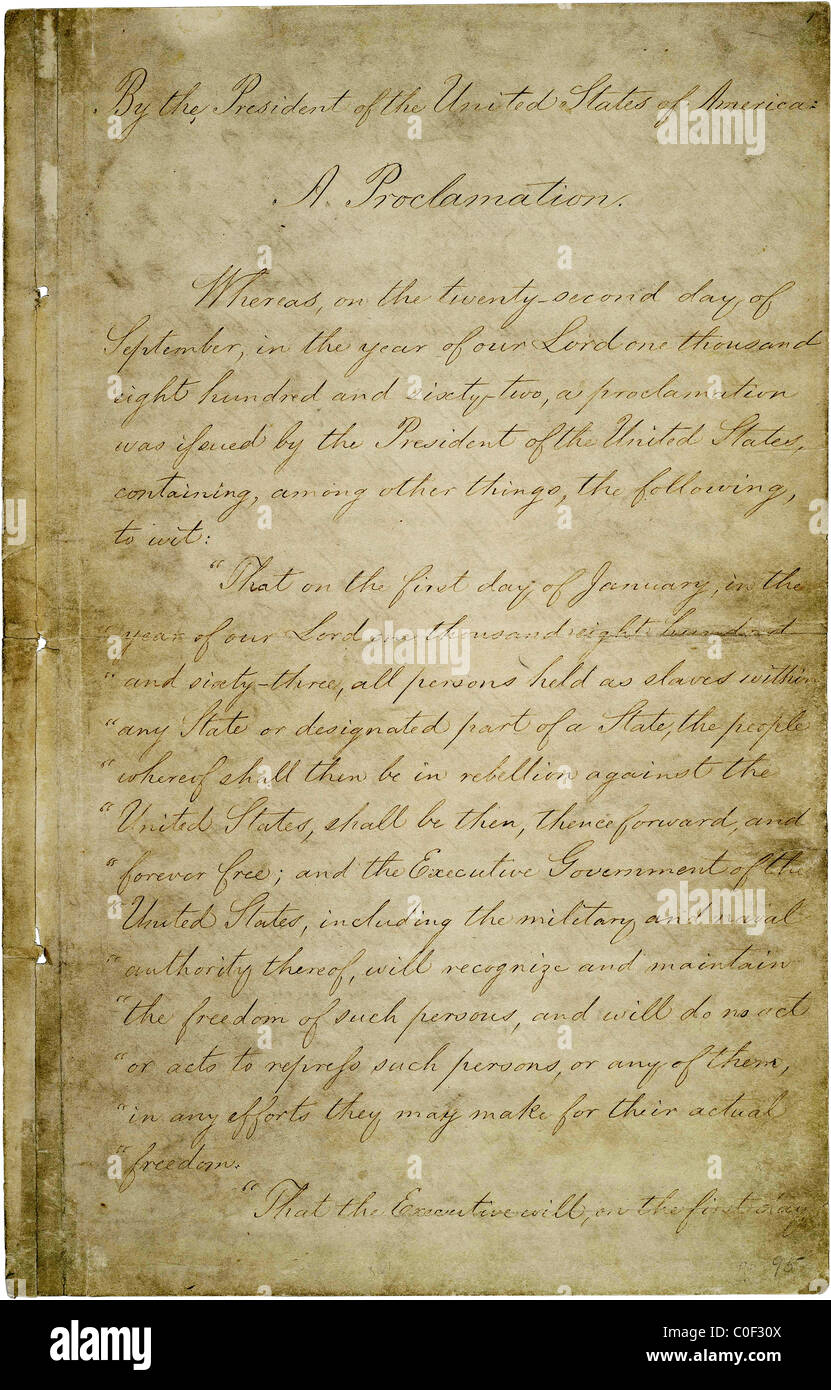 By the President of the United States of America:
A Proclamation.
Whereas, on the twenty-second day of
September, in the year of our Lord one thousand
eight hundred and sixty-two, a proclamation
was issued by the President of the United States,
containing, among other things, the following,
to wit:
"That on the first day of January, in the
"year of our Lord one thousand eight hundred
"and sixty-three, all persons held as slaves within
"any State or designated part of a State, the people
"whereof shall then be in rebellion against the
"United States, shall be then, thenceforward, and
"forever free; and the Executive Government of the
"United States, including the military and naval
"authority thereof, will recognize and maintain
"the freedom of such persons, and will do no act
"or acts to repress such persons, or any of them,
"in any efforts they may make for their actual
"freedom.
"That the Executive will, on the first day
95
alamy
alamy
alamy
alamy
Image ID: C0F30X
www.alamy.com